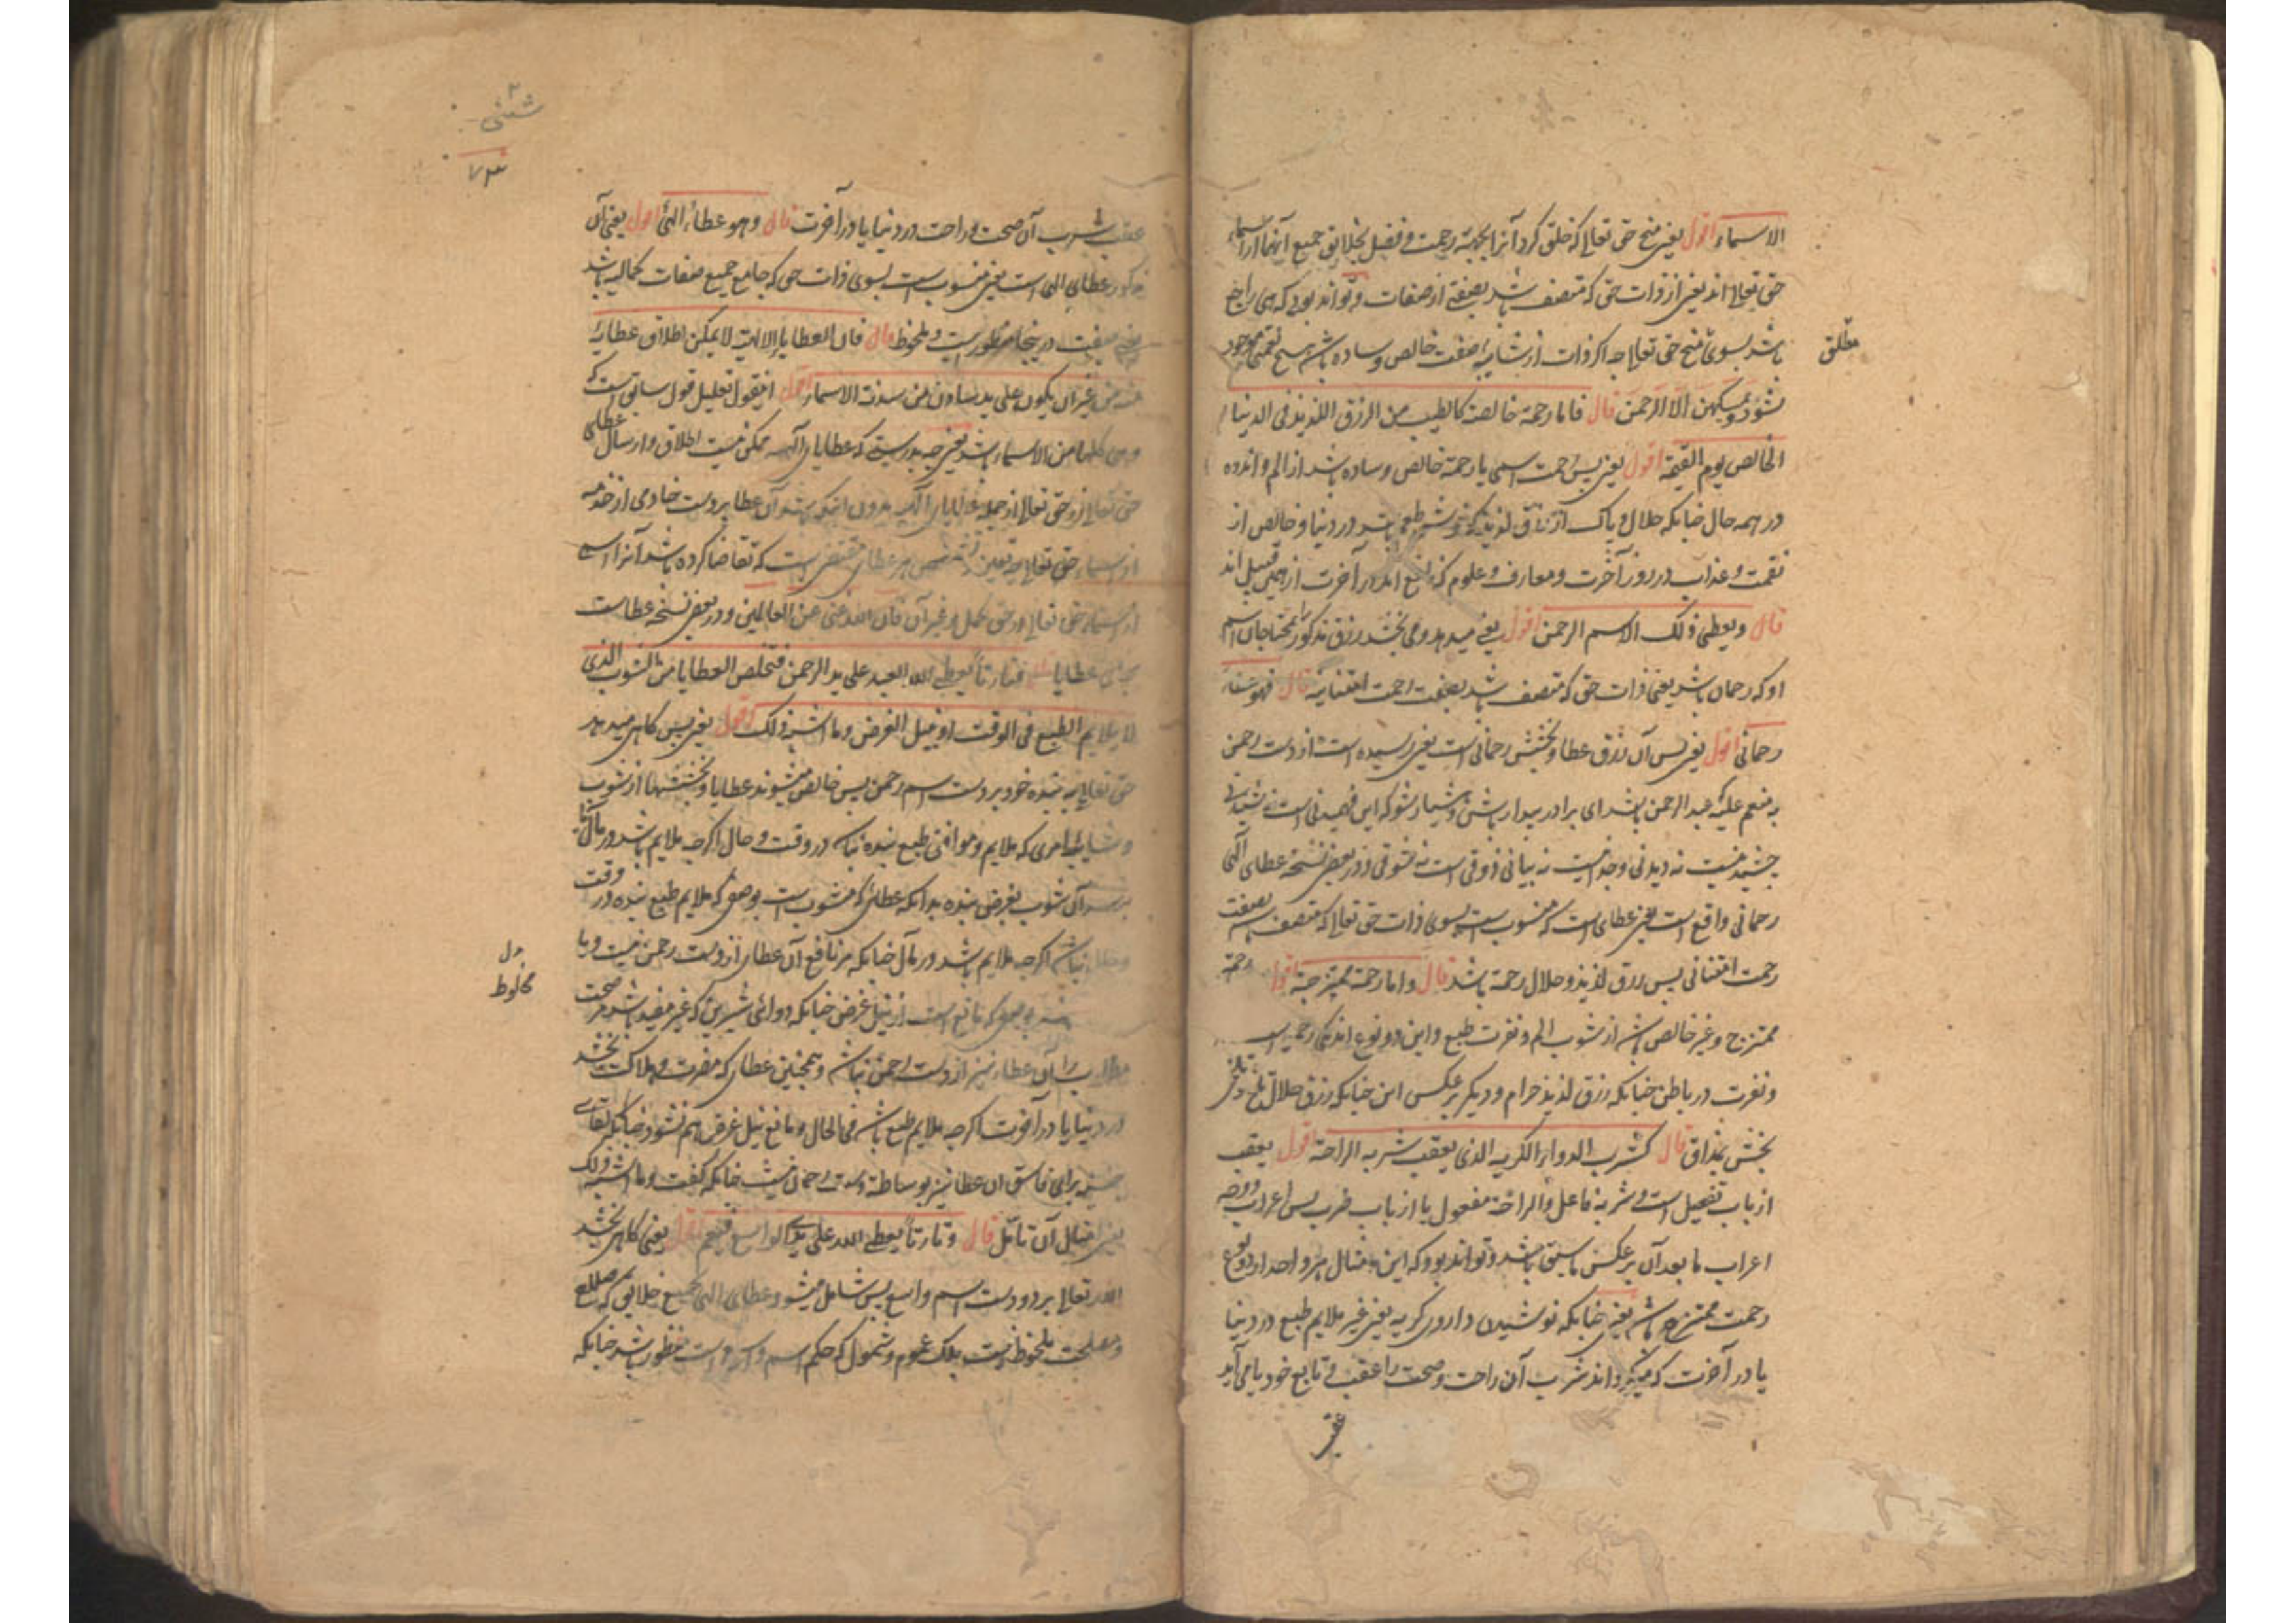 الاسماء اقول یعنی منح حق تعالی که خلق کرد آنرا بجهة رحمت و فضل بخلایق جمیع آنها از اسماء
حق تعالی اند یعنی از ذات حق که متصف باشد بصفتی از صفات و تواند بود که هی راجع
باشد بسوی منح حق تعالی چه اگر ذات از شایبهٔ صفت خالص و ساده باشد هیچ نعمتی موجود
مطلق
نشود و یمسکهن الا الرحمن قال فاما رحمة خالصة کالطیب من الرزق اللذیذ فی الدنیا
الخالص یوم القیمة اقول یعنی پس رحمت اسمی یا رحمة خالص و ساده باشد از الم و اندوه
در همه حال چنانکه حلال و پاک از رزق لذیذ که خوش طعم باشد در دنیا و خالص از
نقمت و عذاب در روز آخرت و معارف و علوم که نافع اند در آخرت ازین قبیل اند
قال ویعطی ذلک الاسم الرحمن اقول یعنی میدهد و می بخشد رزق مذکور را بمحتاجان اسم
او که رحمان باشد یعنی ذات حق که متصف باشد بصفت رحمت امتنانیه قال فهو عطاء
رحمانی اقول یعنی پس آن رزق عطا و بخشش رحمانی است یعنی رسیده است از دست رحمن
به منعم علیه که عبد الرحمن باشد ای برادر بیدار باش و هشیار شو که این فهمیدنی است نه شنیدنی
چشیدنیست نه دیدنی وجدانیست نه بیانی ذوقی است نه شوقی و در بعض نسخه عطای الهی
رحمانی واقع است یعنی عطای است که منسوب است بسوی ذات حق تعالی که متصف باشد بصفت
رحمت امتنانی پس رزق لذیذ و حلال رحمة باشد قال و اما رحمة ممتزجة اقول رحمة
ممتزج و غیر خالص باشد از شوب الم و نفرت طبع و این دو نوع اند یکی رحمیست
و نفرت در باطن چنانکه رزق لذیذ حرام و دیگر بر عکس این چنانکه رزق حلال تلخ
بخش بمذاق قال کشرب الدواء الکریه الذی یعقب شربه الراحة اقول یعقب
از باب تفعیل است و شربه فاعل و الراحة مفعول یا از باب ضرب پس اعراب
اعراب ما بعد آن بر عکس ما سبق باشد و تواند بود که این مثال هر واحد از دو نوع
رحمت ممتزج باشد یعنی چنانکه نوشیدن داروی کریه یعنی غیر ملایم طبع در دنیا
یا در آخرت که میگرداند شرب آن راحت و صحت را عقب و تابع خود یا می آید
عقب
عقب شرب آن صحت و راحت در دنیا یا در آخرت قال وهو عطاء الهی اقول یعنی آن
مذکور عطای الهی است یعنی منسوب است بسوی ذات حق که جامع جمیع صفات کمالیه باشد
صفت در اینجا منظور است و ملحوظ قال فان العطایا الالهیة لا یمکن اطلاق عطایه
منه من غیر ان یکون علی ید سادن من سدنة الاسماء اقول این قول تعلیل قول سابق است که
وهی کلها من الاسماء باشد یعنی چه بدرستیکه عطایای الهیه ممکن نیست اطلاق و ارسال عطای
حق تعالی از حق تعالی از جمله عطایای الهیه بدون اینکه باشد آن عطا بر دست خادمی از خدمه
از اسماء حق تعالی چه تعین و تشخص هر عطای مقتضی است که تقاضا کرده باشد آنرا اسمی
از اسماء حق تعالی در حق محل و غیر آن فان الله غنی عن العالمین و در بعض نسخه عطاست
بجای عطایا قال فتارة یعطی الله العبد علی ید الرحمن فتخلص العطایا من الشوب الذی
لا یلایم الطبع فی الوقت او نیل الغرض وما اشبه ذلک اقول یعنی پس گاهی میدهد
حق تعالی به بنده خود بر دست اسم رحمن پس خالص میشوند عطایا و بخششها از شوب
و شایبهٔ امری که ملایم و موافق طبع بنده نباشد در وقت و حال اگرچه ملایم باشد در مآل تا
برسد آن شوب بغرض بنده بدانکه عطای که مشوب است بوصفی که ملایم طبع بنده در وقت
و حال نباشد اگرچه ملایم باشد در مآل چنانکه مر نافع آن عطای از دست رحمن نیست و با
مخلوط
بوصفی که مانع است از نیل غرض چنانکه دوائی شیرین که غیر مفید باشد مر صحت
مطلوب را آن عطاء نیز از دست رحمن نباشد و همچنین عطای که مضرت و هلاکت بخشد
در دنیا یا در آخرت اگرچه ملایم طبع باشد فی الحال و مانع نیل غرض هم نشود چنانکه
برای فاسق آن عطا نیز بوساطة دست رحمان نیست چنانکه گفت وما اشبه ذلک
یعنی امثال آن تأمل قال وتارة یعطی الله علی ید الواسع فیعم اقول یعنی گاهی بخشد
الله تعالی بر دو دست اسم واسع پس شامل میشود عطای الهی بجمیع خلایق که
و مصلحت ملحوظ نیست بلکه عموم و شمول که حکم اسم واسع است منظور باشد چنانکه